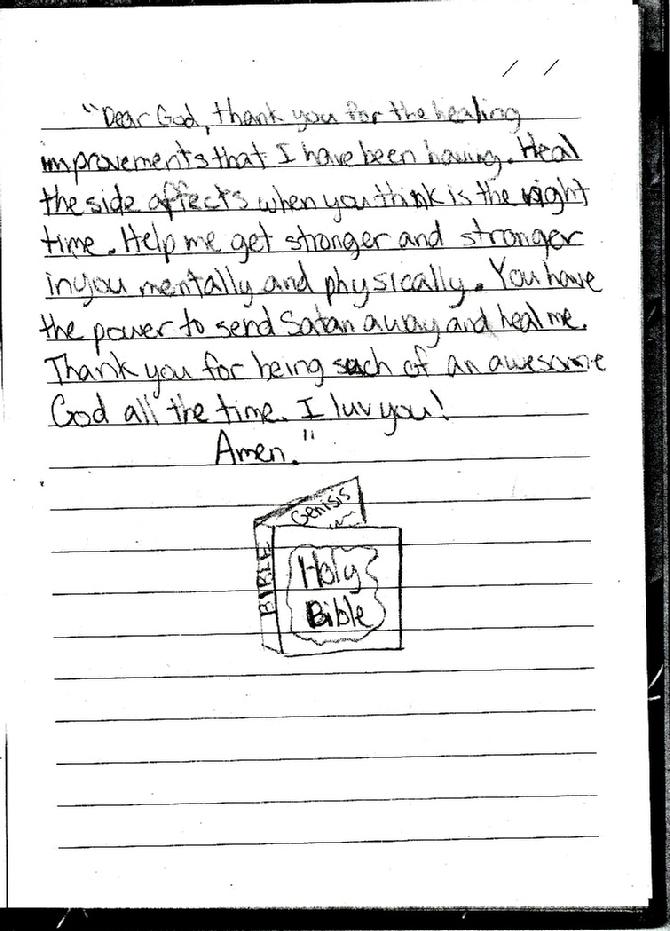 / /
"Dear God, thank you for the healing
improvements that I have been having. Heal
the side affects when you think is the right
time. Help me get stronger and stronger
in you mentally and physically. You have
the power to send Satan away and heal me.
Thank you for being such of an awesome
God all the time. I luv you!
Amen."
Genisis
BIBLE
Holy
Bible